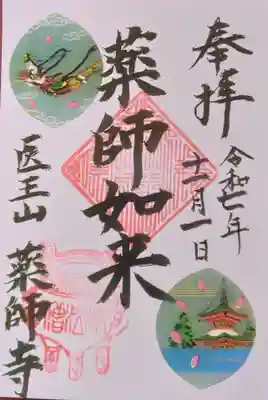 奉拝
令和七年
十一月一日
薬師如来
医王山 薬師寺